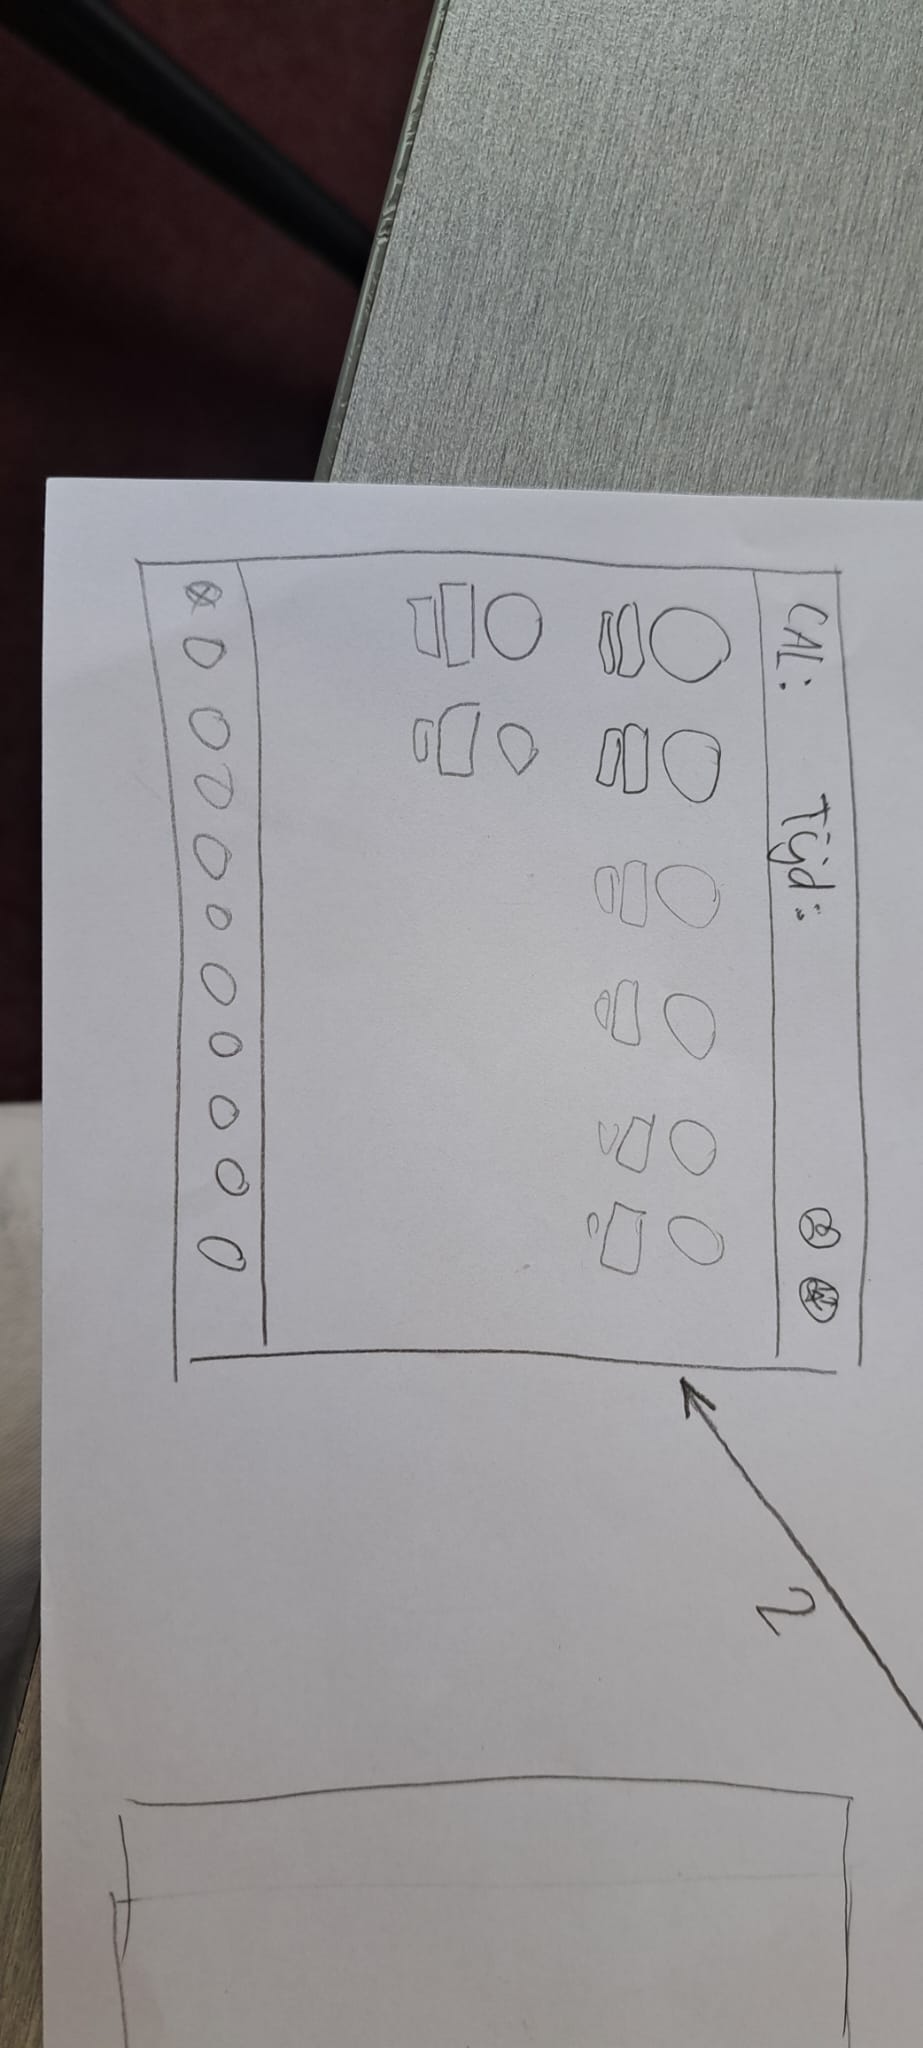 CAL: Tijd:
2